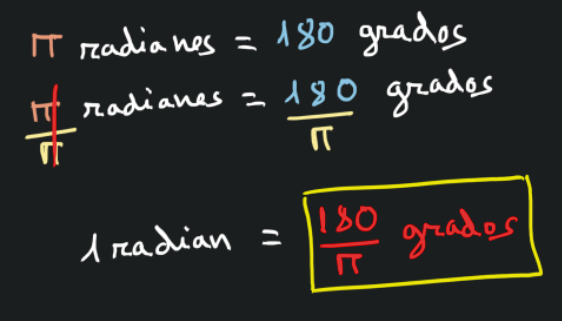 π radianes = 180 grados
π/π radianes = 180/π grados
1 radian = 180/π grados